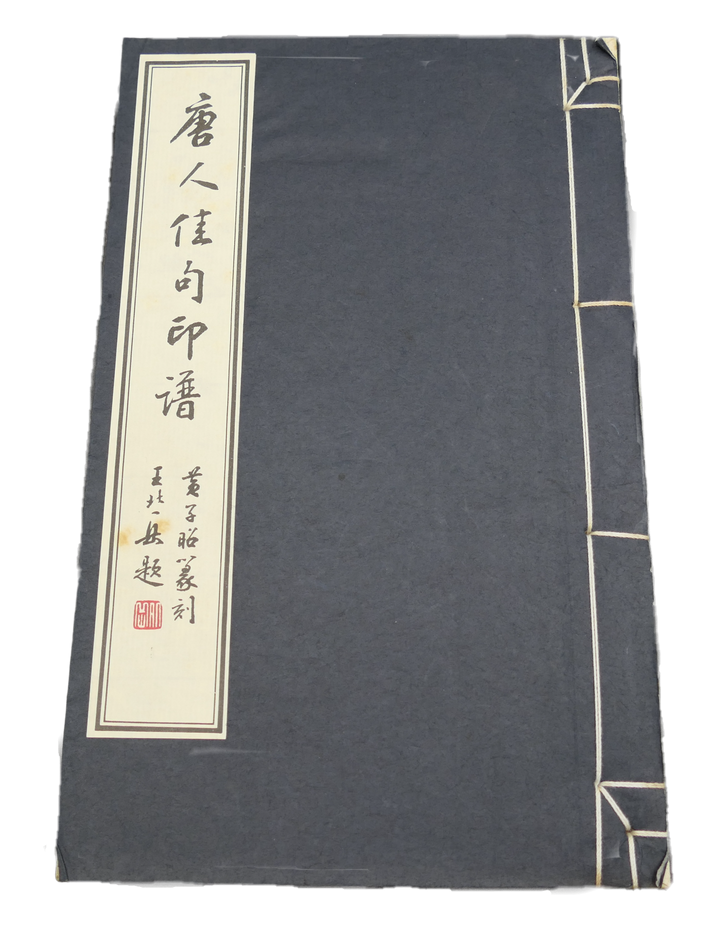 唐人佳句印谱
黄子昭篆刻
王北岳题